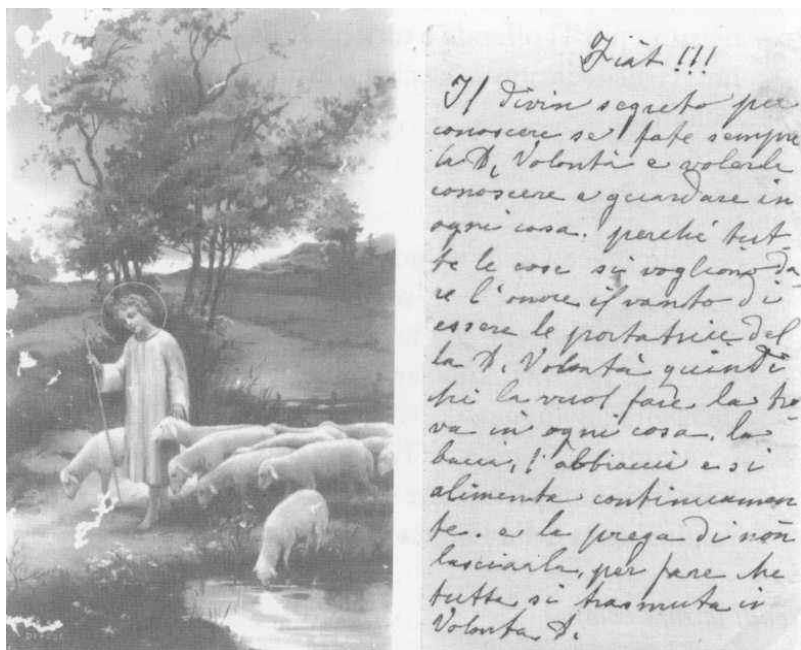 Fiat !!!
Il divin segreto per
conoscere se fate sempre
la D. Volontà e volerla
conoscere e guardare in
ogni cosa. perché tut
te le cose si vogliono da
re l'onore il vanto di
essere le portatrice del
la D. Volontà quindi
chi la vuol fare la tro
va in ogni cosa, la
bacia, l'abbraccia e si
alimenta continuamen
te. e la prega di non
lasciarla, per fare che
tutta si trasmuta in
Volontà D.